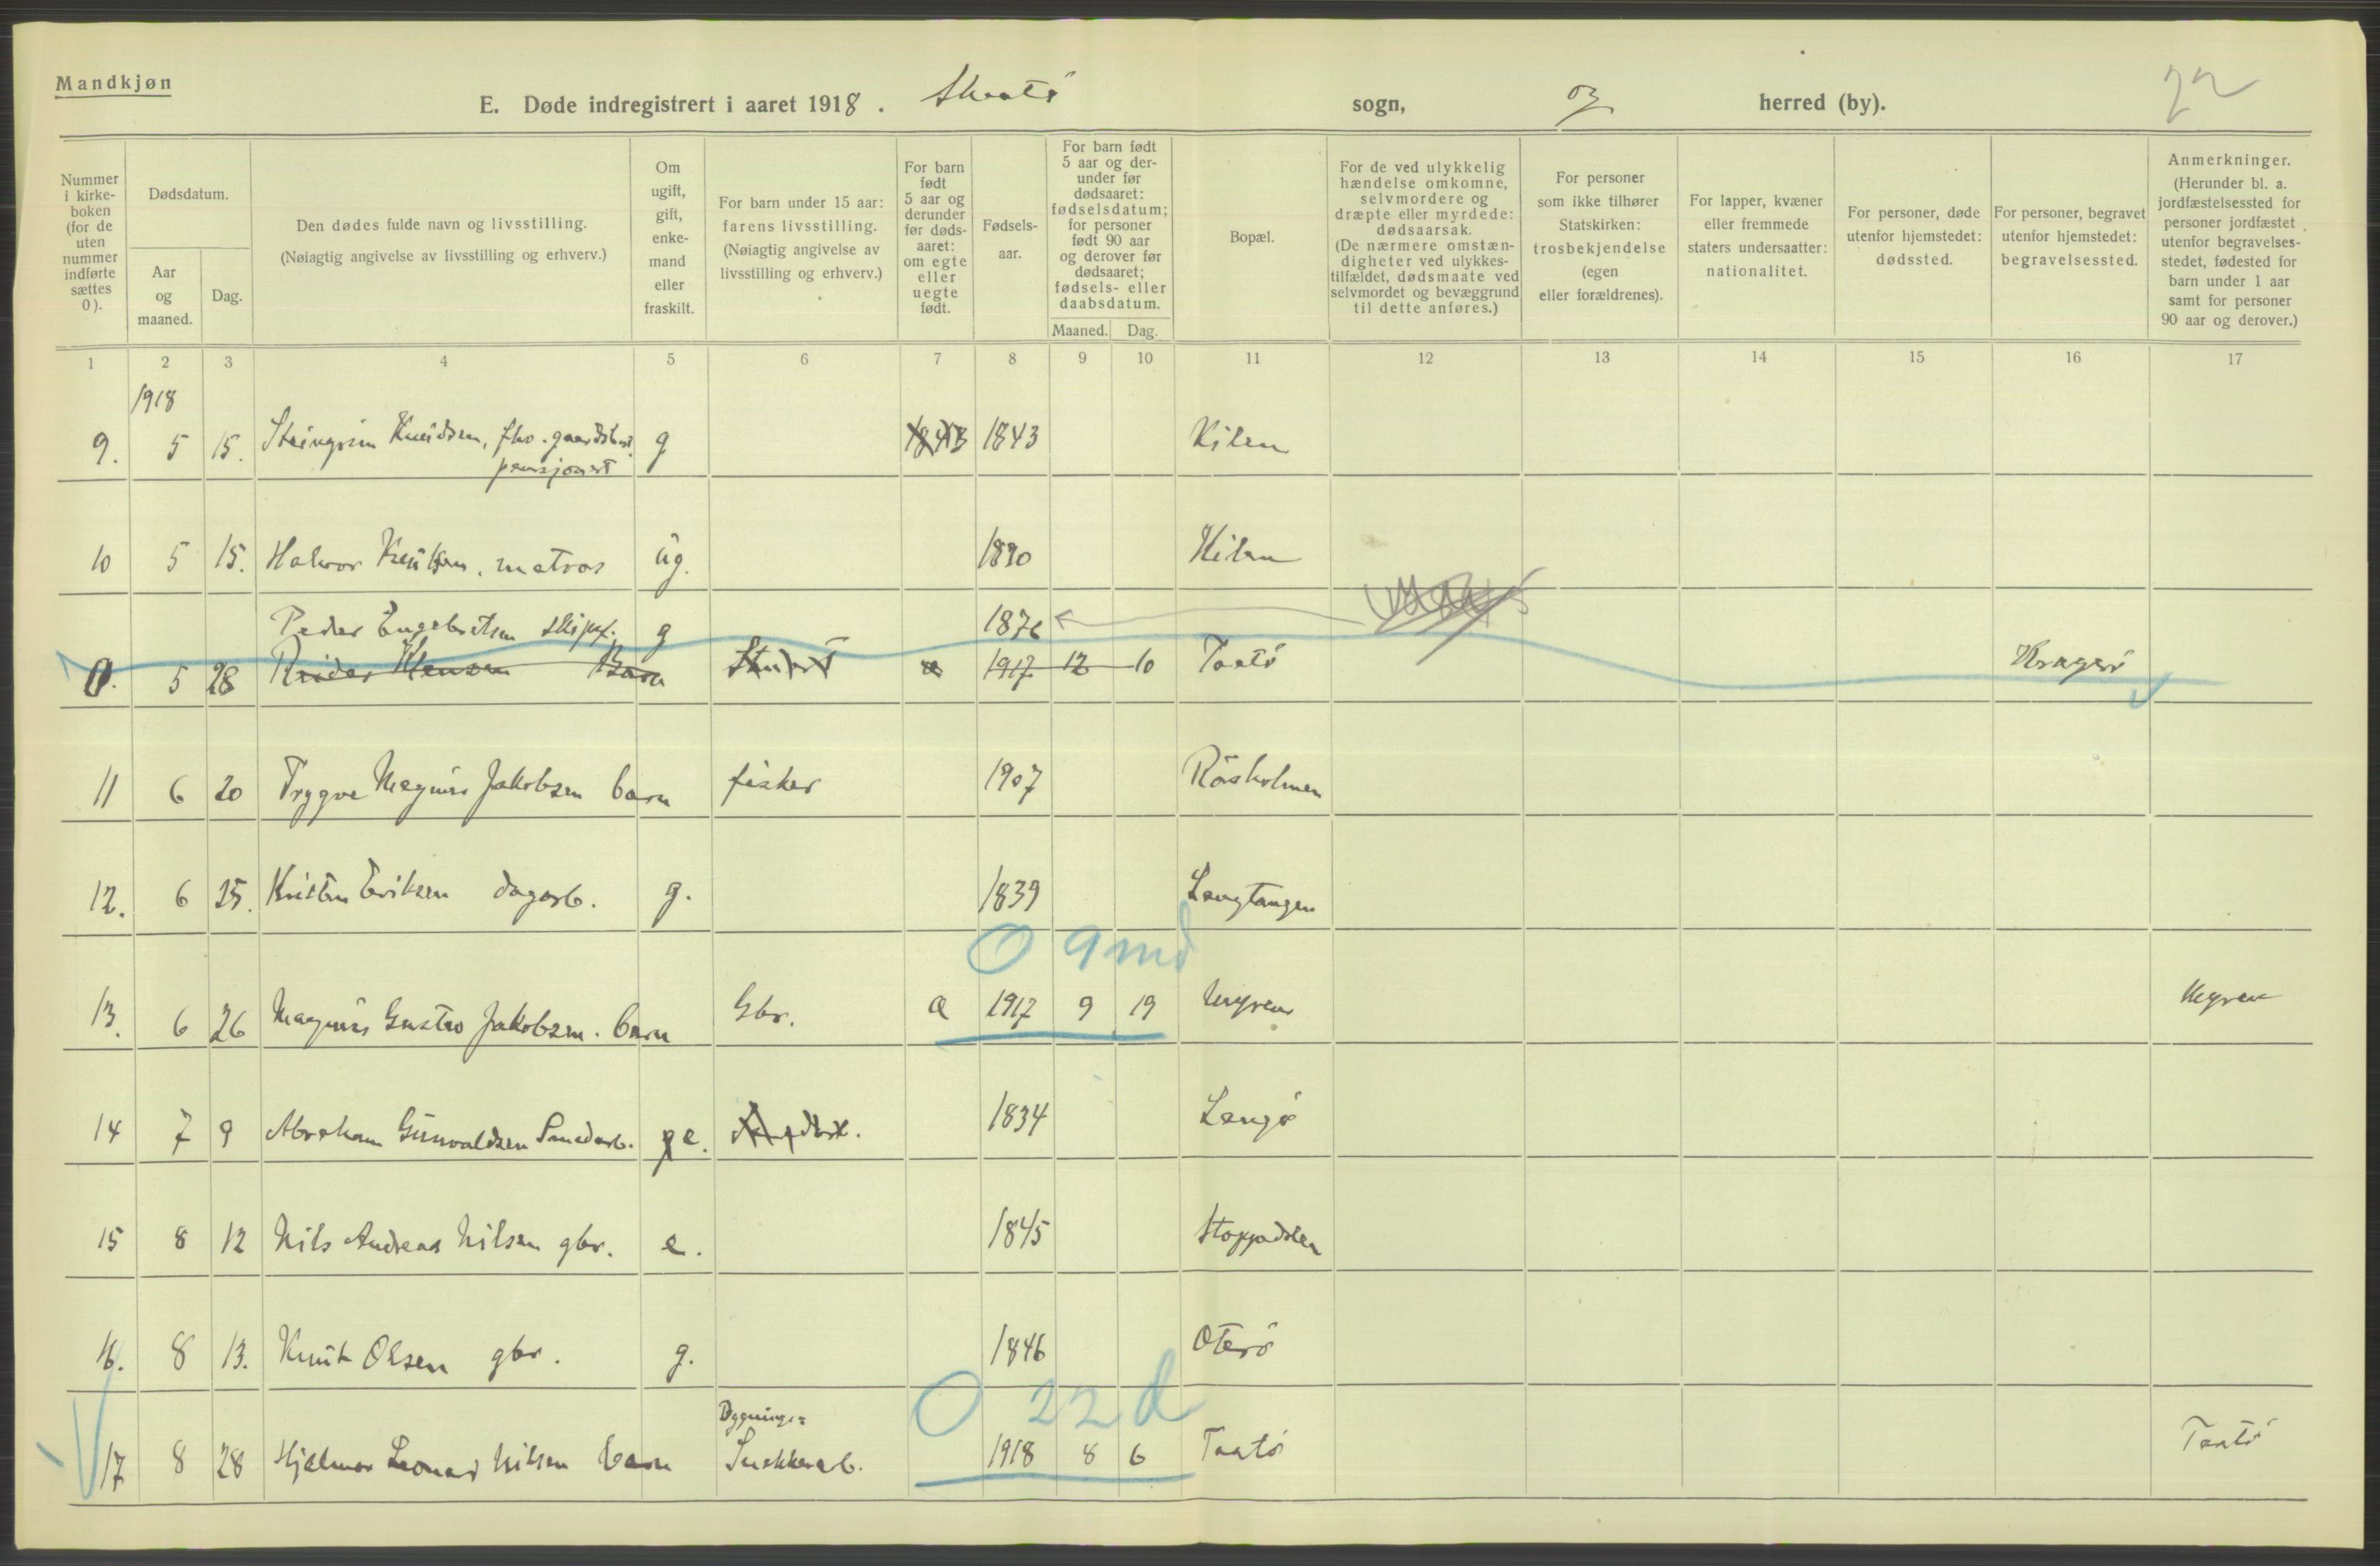 Mandkjøn
E. Døde indregistrert i aaret 1918. Skaatö sogn, og herred (by). 22
Nummer i kirkeboken (for de uten nummer indførte sættes 0).
Dødsdatum.
Aar og maaned.
Dag.
Den dødes fulde navn og livsstilling.
(Nøiagtig angivelse av livsstilling og erhverv.)
Om ugift, gift, enkemand eller fraskilt.
For barn under 15 aar: farens livsstilling.
(Nøiagtig angivelse av livsstilling og erhverv.)
For barn født 5 aar og derunder før dødsaaret: om egte eller uegte født.
Fødselsaar.
For barn født 5 aar og derunder før dødsaaret: fødselsdatum; for personer født 90 aar og derover før dødsaaret; fødsels- eller daabsdatum.
Maaned. Dag.
Bopæl.
For de ved ulykkelig hændelse omkomne, selvmordere og dræpte eller myrdede: dødsaarsak.
(De nærmere omstændigheter ved ulykkestilfældet, dødsmaate ved selvmordet og bevæggrund til dette anføres.)
For personer som ikke tilhører Statskirken: trosbekjendelse (egen eller forældrenes).
For lapper, kvæner eller fremmede staters undersaatter: nationalitet.
For personer, døde utenfor hjemstedet: dødssted.
For personer, begravet utenfor hjemstedet: begravelsessted.
Anmerkninger.
(Herunder bl. a. jordfæstelsessted for personer jordfæstet utenfor begravelsesstedet, fødested for barn under 1 aar samt for personer 90 aar og derover.)
1 2 3 4 5 6 7 8 9 10 11 12 13 14 15 16 17
1918
9. 5 15. Steingrim Knudsen, fhv. gaardbr. g 1843 1843 Kilen
pensjonist
10 5 15. Halvor Knutsen, matros ug. 1890 Kilen
Peder Engebretsen skipsf. g 1876
0. 5 28 Reidar Klausen Barn 1917 12 10 Taatö Kragerö
11 6 20 Trygve Magnus Jakobsen barn fisker 1907 Rörholmen
12. 6 25. Kristen Eriksen dagarb. g. 1839 Langtangen
0 9 md
13. 6 26 Magnus Gustav Jakobsen. barn Gbr. e 1917 9 19 Myren Myren
14 7 9 Abraham Gunvaldsen Smedarb. e. 1834 Langö
15 8 12 Nils Andreas Nilsen gbr. e. 1845 Stoppdalen
16. 8 13. Knut Olsen gbr. g. 1846 Oterö
0 22 d
Bygnings=
17 8 28 Hjalmar Leonard Nilsen barn Snekkerarb. 1918 8 6 Taatö Taatö